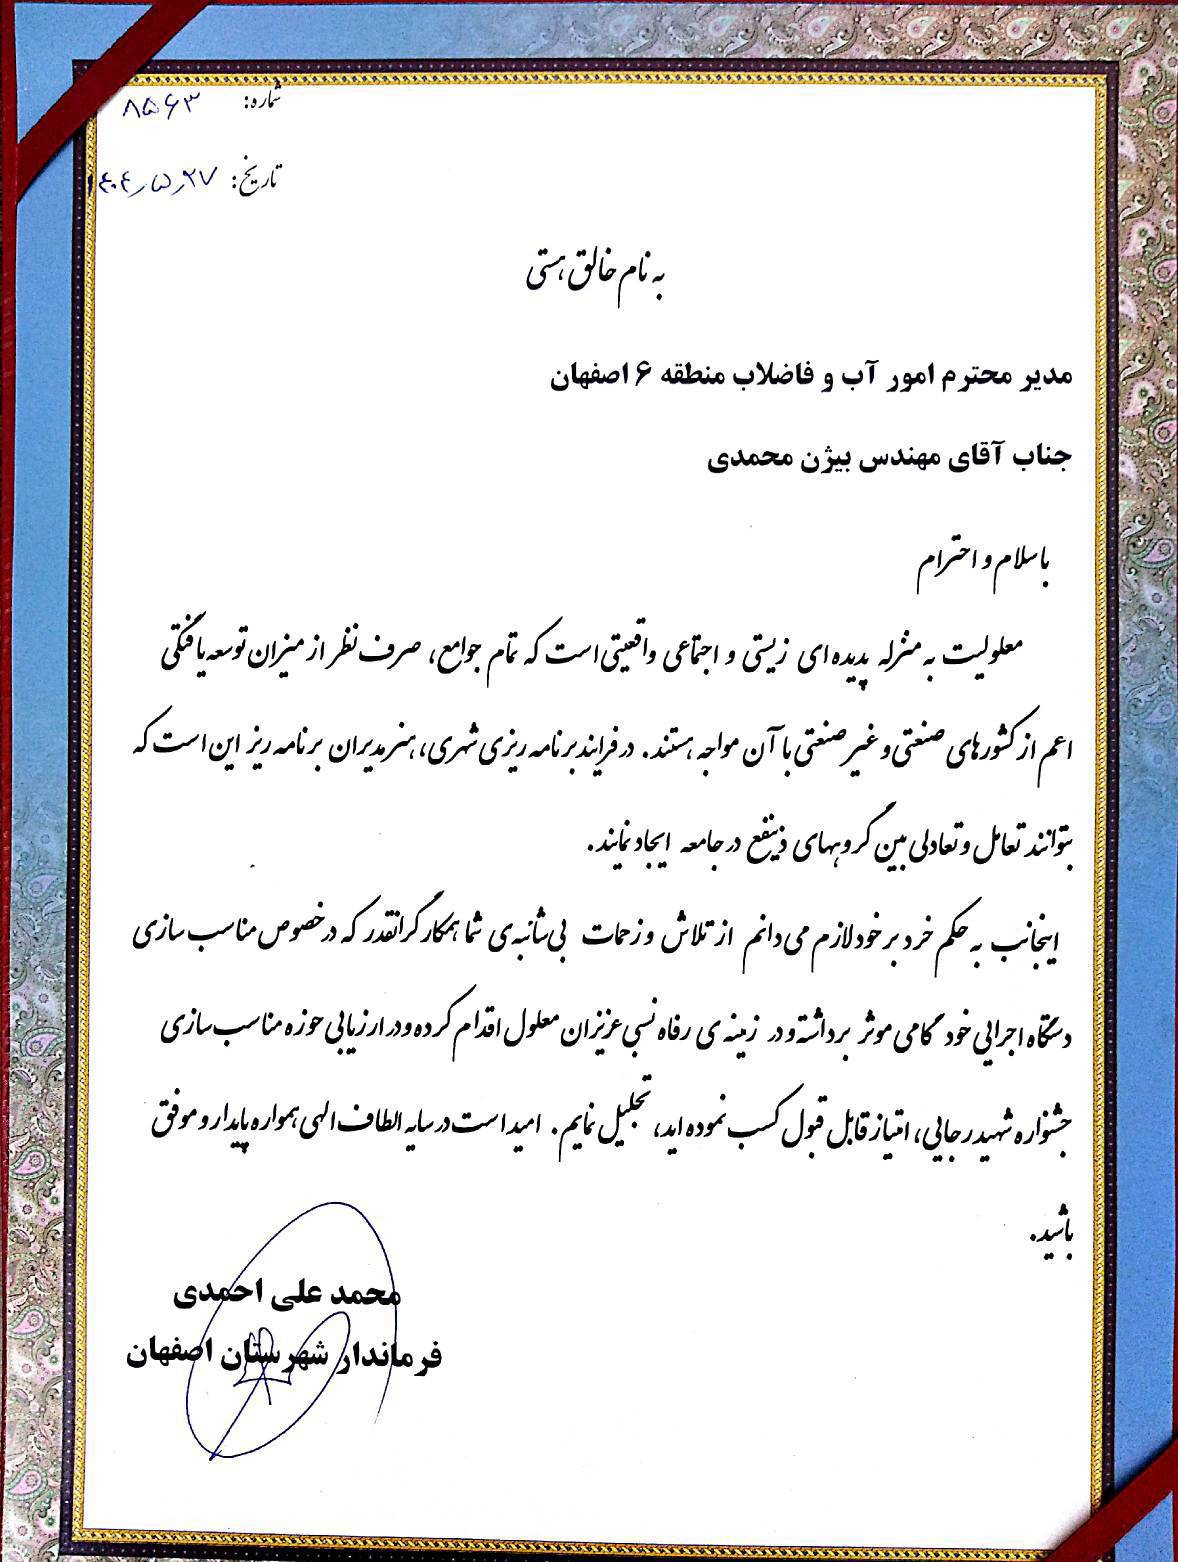 شماره: ۸۵۶۳
تاریخ: ۱۴۰۴٫۵٫۲۷
به نام خالق هستی
مدیر محترم امور آب و فاضلاب منطقه ۶ اصفهان
جناب آقای مهندس بیژن محمدی
با سلام و احترام
معلولیت به منزله پدیده ای زیستی و اجتماعی واقعیتی است که تمام جوامع، صرف نظر از میزان توسعه یافتگی
اعم از کشورهای صنعتی و غیر صنعتی با آن مواجه هستند. در فرایند برنامه ریزی شهری، هنر مدیران برنامه ریز این است که
بتوانند تعامل و تعادلی بین گروههای ذینفع در جامعه ایجاد نمایند.
اینجانب به حکم خرد بر خود لازم می دانم از تلاش و زحمات بی شائبه ی شما همکار گرانقدر که در خصوص مناسب سازی
دستگاه اجرایی خود گامی موثر برداشته و در زمینه ی رفاه نسبی عزیزان معلول اقدام کرده و در ارزیابی حوزه مناسب سازی
جشنواره شهید رجایی، امتیاز قابل قبول کسب نموده اید، تجلیل نمایم. امید است در سایه الطاف الهی همواره پایدار و موفق
باشید.
محمد علی احمدی
فرماندار شهرستان اصفهان